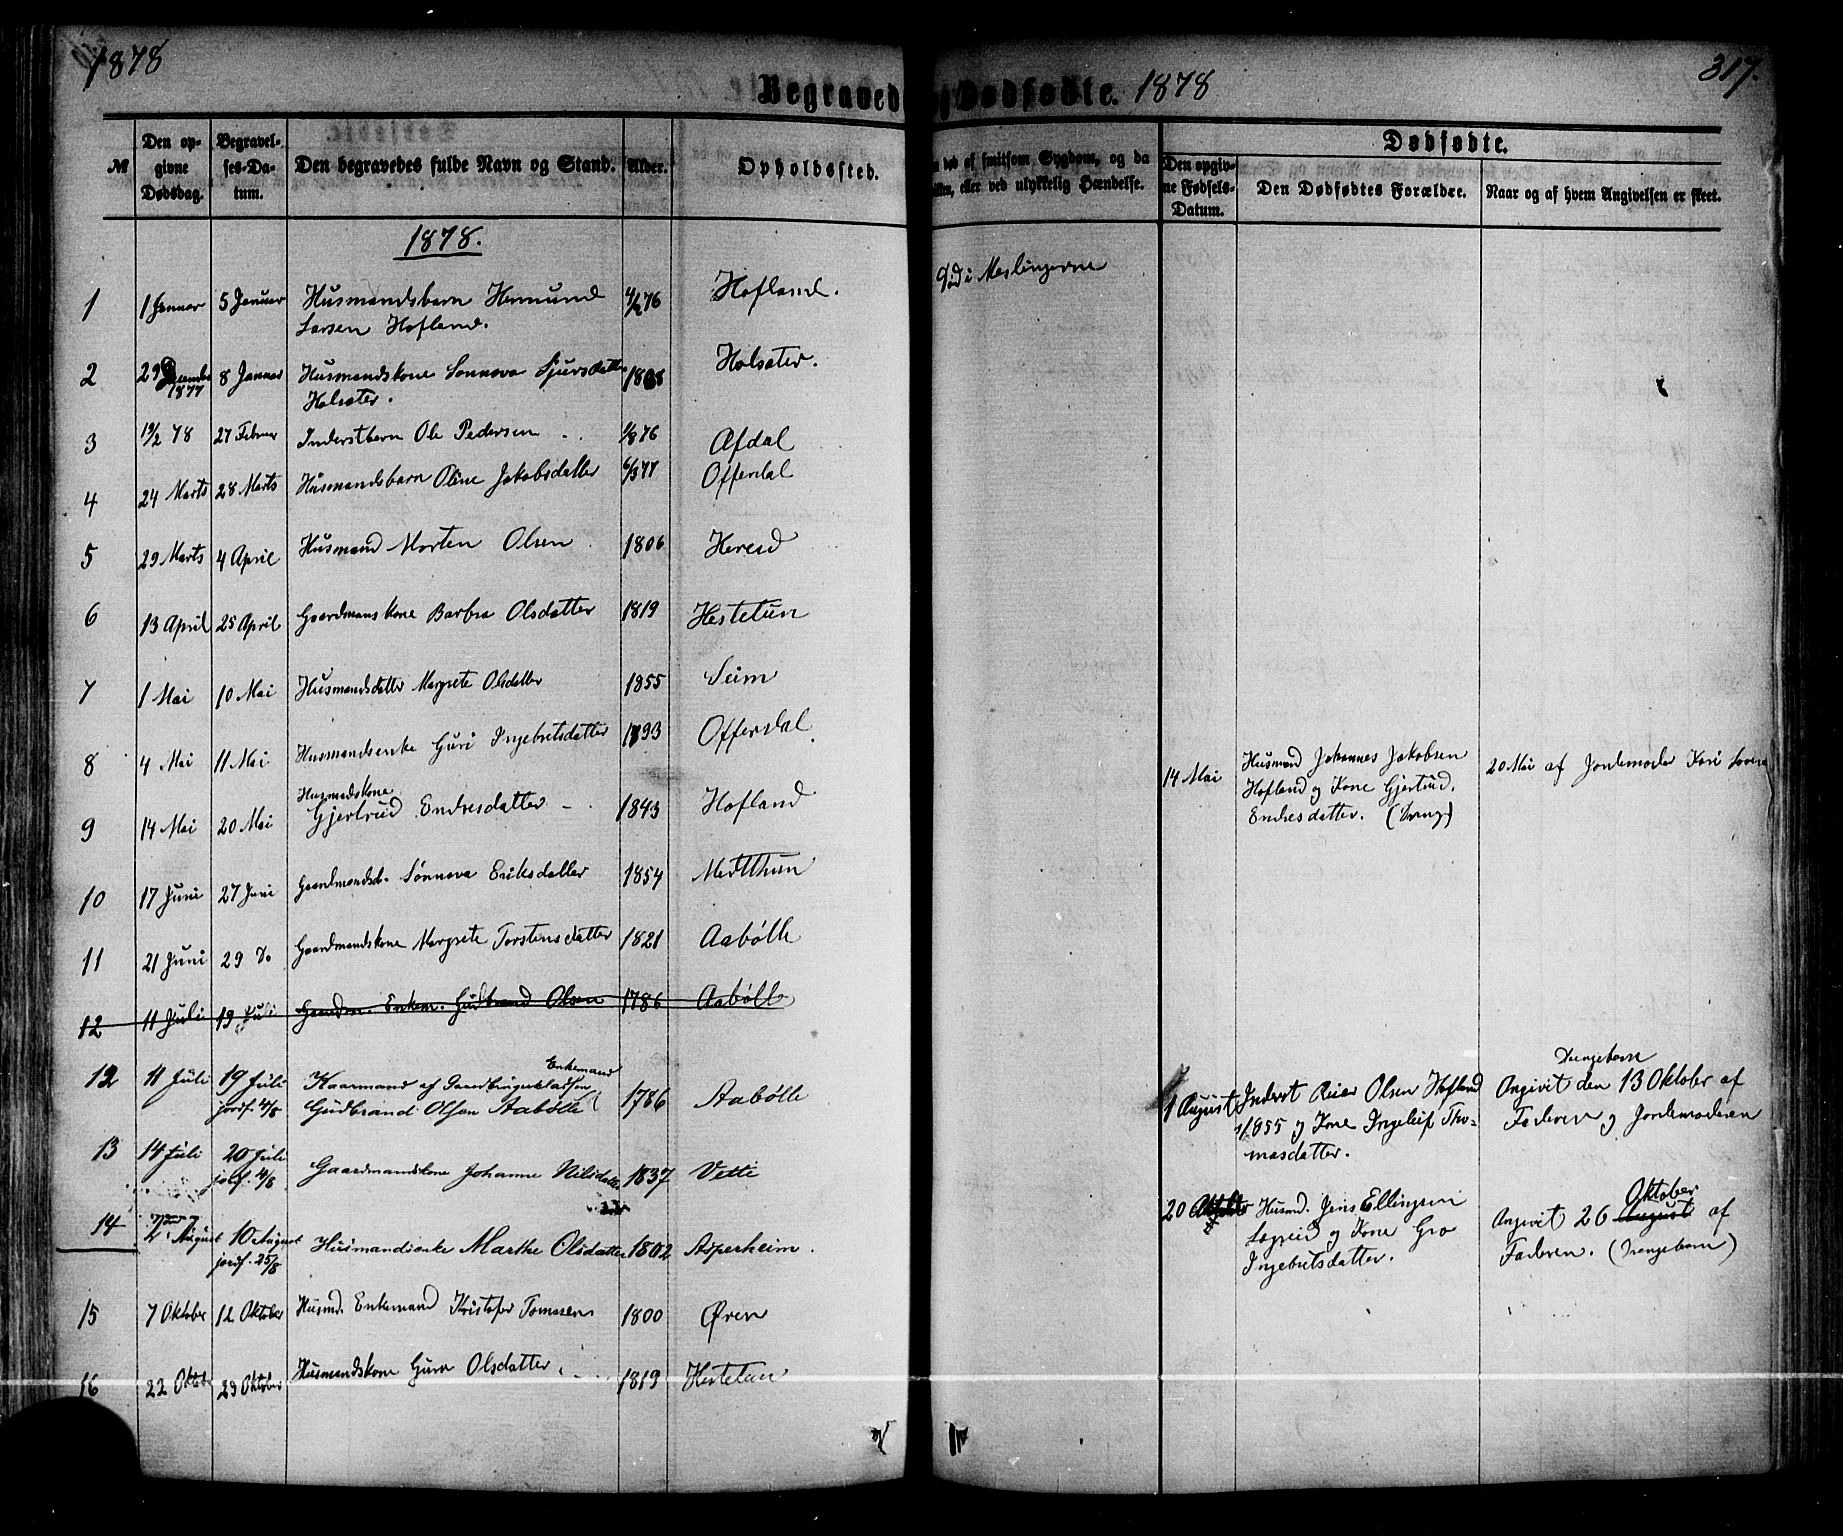 1878
Begravede og Dødfødte. 1878
317.
M
Den opgivne Dødsdag.
Begravelses-Datum.
Den begravedes fulde Navn og Stand.
Alder.
Opholdssted.
ved af smitsom Sygdom, og da
eller ved ulykkelig Hændelse.
Dødfødte.
Den opgivne Fødsels-Datum.
Den Dødfødtes Forældre.
Naar og af hvem Angivelsen er skeet.
1878.
1 1 Januar 5 Januar Husmandsbarn Hermund 4/2 76 Hofland. Død i Meslingerne
Larsen Hofland.
2 29 December 8 Januar Husmandskone Sønnova Sjursdatter 1808 Holsæter.
1877 Holsæter.
3 19/2 78 27 Februar Inderstbarn Ole Pedersen 1/8 76 Afdal
4 24 Marts 28 Marts Husmandsbarn Oline Jakobsdatter 6/3 77 Offerdal
5 29 Marts 4 April Husmand Morten Olsen 1806 Heresd
6 13 April 25 April Gaardmanskone Barbra Olsdatter 1819 Hestetun
7 1 Mai 10 Mai Husmandsdatter Margrete Olsdatter 1855 Seim
8 4 Mai 11 Mai Husmandsenke Guri Ingebretsdatter 1793 Offerdal
14 Mai Husmand Johannes Jakobsen 20 Mai af Jordemoder Kari
Hofland og Kone Gjertrud
Endresdatter. (Dreng)
Husmandskone
9 14 Mai 20 Mai Gjertrud Endresdatter 1843 Hofland
10 17 Juni 27 Juni Gaardmandsd. Sønnova Eriksdatter 1854 Midtthun
11 21 Juni 29 Do Gaardmandskone Margrete Torstensdatter 1821 Aabølle
12 11 Juli 19 Juli Gaardm. Enkem. Gudbrand Olsen 1786 Aabølle
Enkemand
12 11 Juli 19 Juli Kaarmand af Gaardbrugerklassen 1786 Aabølle
jordf. 4/8 Gudbrand Olsen Aabølle
Drengebarn
1 August Inderst Reier Olsen Hofland Angivet den 13 Oktober af
1855 og Kone Ingeleif Tho- Faderen og Jordemoderen
masdatter.
13 14 Juli 20 Juli Gaardmandskone Johanne Nilsdatter 1837 Vetti
jordf. 4/8
14 August 10 August Husmandsenke Marthe Olsdatter 1802 Asperheim.
jordf. 25/8
20 Husmd. Jens Ellingsen Oktober
Angivet 26 August af
og Kone Gro Faderen. (Drengebarn)
Ingebretsdatter.
15 7 Oktober 12 Oktober Husmd. Enkemand Kristofer Tomassen 1800 Øren
16 22 Oktob 29 Oktober Husmandskone Guro Olsdatter 1819 Hestetun